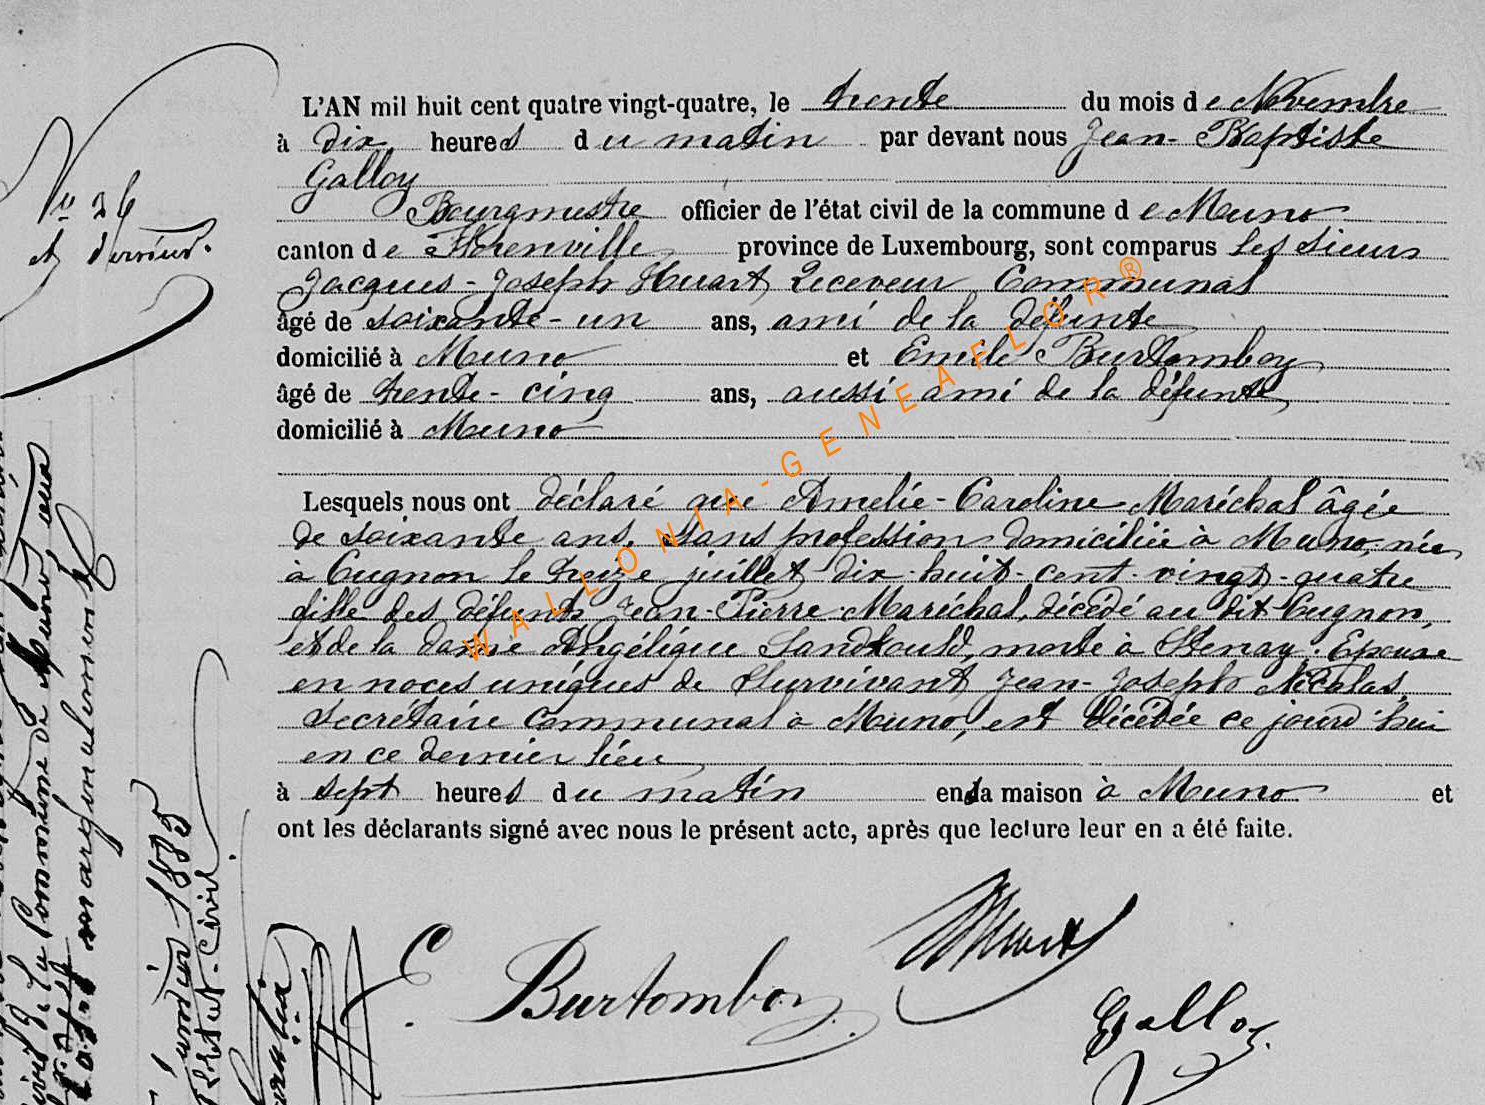 L'AN mil huit cent quatre vingt-quatre, le trente du mois de Novembre
à dix heures du matin par devant nous Jean-Baptiste
Galloy
Bourgmestre officier de l'état civil de la commune de Muno
canton de Florenville province de Luxembourg, sont comparus les sieurs
Jacques-Joseph Huart, Receveur Communal
âgé de soixante-un ans, ami de la défunte
domicilié à Muno et Emile Burtomboy
âgé de trente-cinq ans, aussi ami de la défunte
domicilié à Muno
Lesquels nous ont déclaré que Amelie-Caroline Maréchal âgée
de soixante ans, sans profession domiciliée à Muno, née
à Cugnon le treize juillet dix-huit-cent-vingt-quatre
fille des défunts Jean-Pierre Maréchal, décédé au dit Cugnon,
et de la dame Angélique morte à Stenay. Epouse
en noces uniques de Survivant Jean-Joseph Nicolas,
secrétaire communal à Muno, est décédée ce jourd'hui
en ce dernier lieu
à sept heures du matin en sa maison à Muno et
ont les déclarants signé avec nous le présent acte, après que lecture leur en a été faite.
E. Burtomboy
Huart
Galloy
No 26
et dernier.
WALLONIA-GENEAFLOR®
Commune de Muno
1885